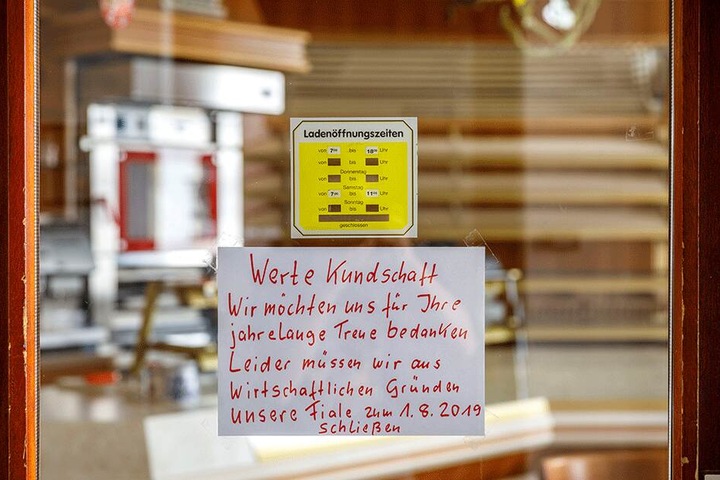 Ladenöffnungszeiten
von 7⁰⁰ bis 18⁰⁰ Uhr
von bis Uhr
Donnerstag
von bis Uhr
Samstag
von 7⁰⁰ bis 11⁰⁰ Uhr
Sonntag
von bis Uhr
geschlossen
Werte Kundschaft
Wir möchten uns für Ihre
jahrelange Treue bedanken
Leider müssen wir aus
wirtschaftlichen Gründen
unsere Fiale zum 1.8.2019
schließen